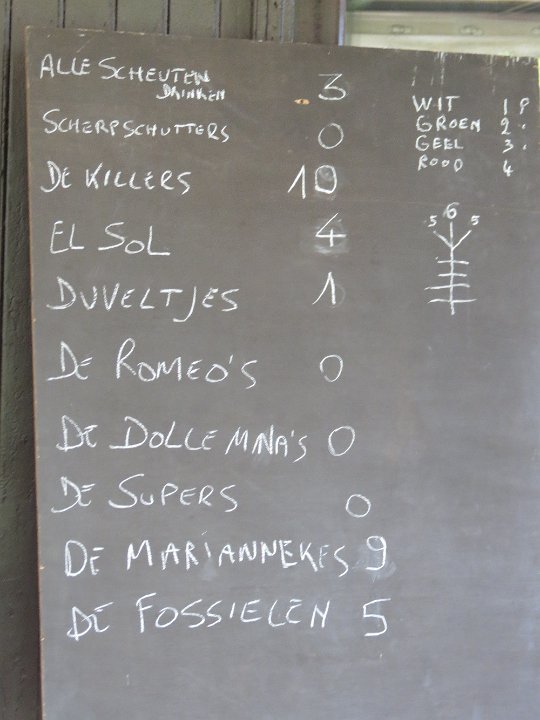 ALLE SCHEUTEN 3
DRINKEN
SCHERPSCHUTTERS 0
DE KILLERS 10
EL SOL 4
DUVELTJES 1
DE ROMEO'S 0
DE DOLLE MINA'S 0
DE SUPERS 0
DE MARIANNEKES 9
DE FOSSIELEN 5
WIT 1 P
GROEN 2 "
GEEL 3 "
ROOD 4
5 6 5